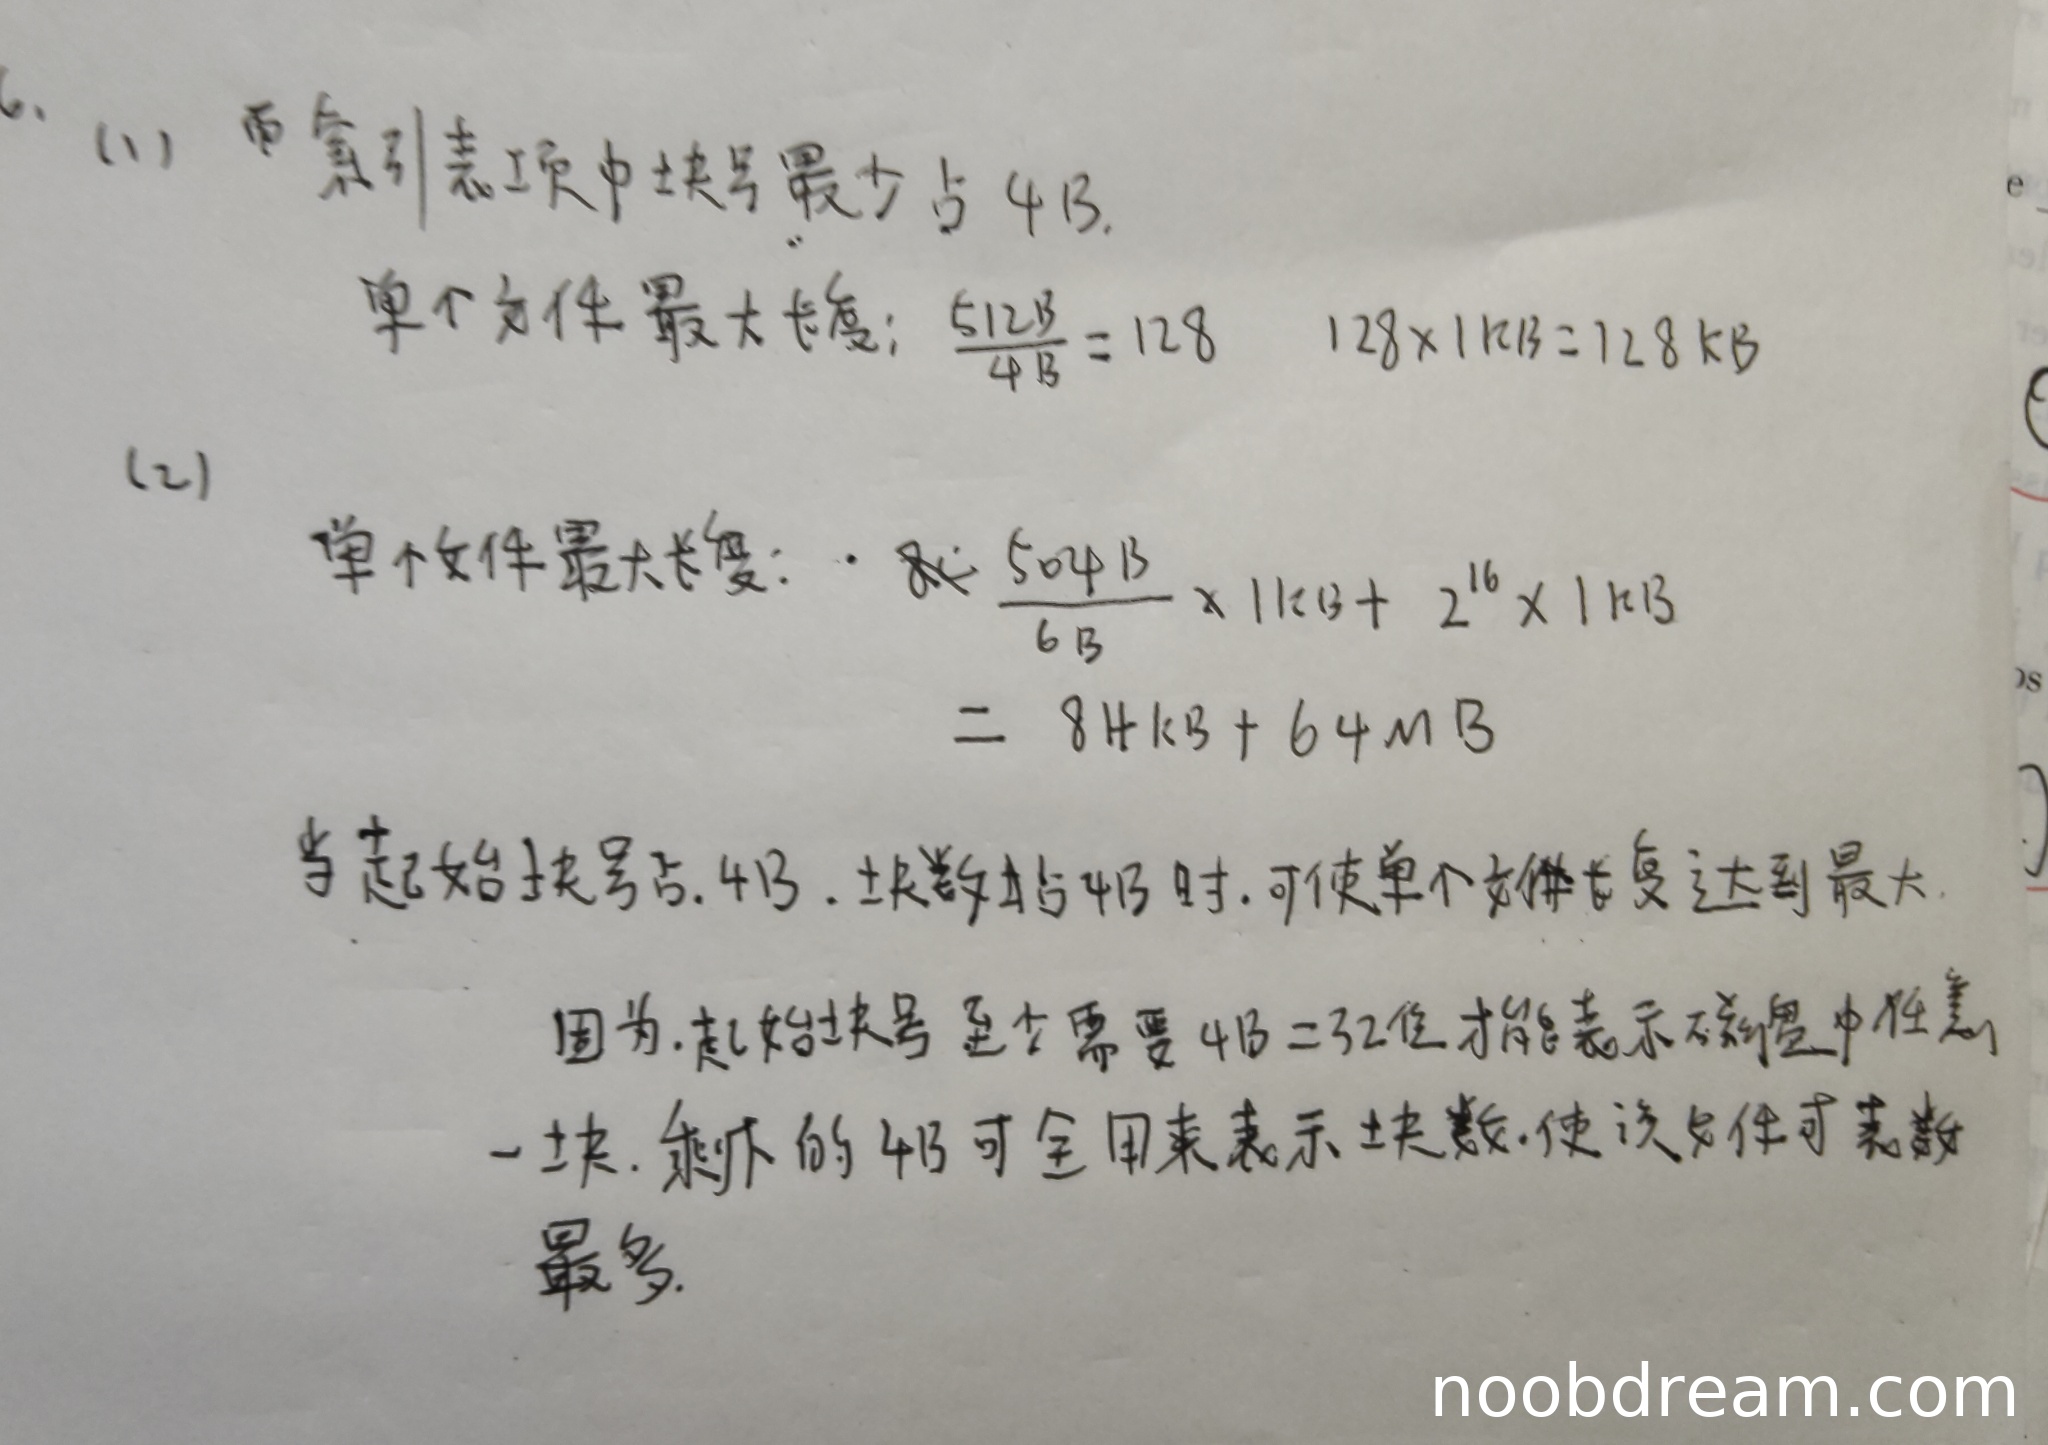 6.
(1) 索引表项中块号最少占 4B.
单个文件最大长度: 512B/4B = 128 128×1KB=128KB
(2)
单个文件最大长度: 504B/6B × 1KB + 2^16 × 1KB
= 84KB + 64MB
当起始块号占.4B.块数占4B时.可使单个文件长度达到最大.
因为.起始块号至少需要4B=32位才能表示磁盘中任意
一块.剩下的4B可全用来表示块数.使该文件可表数
最多.
noobdream.com